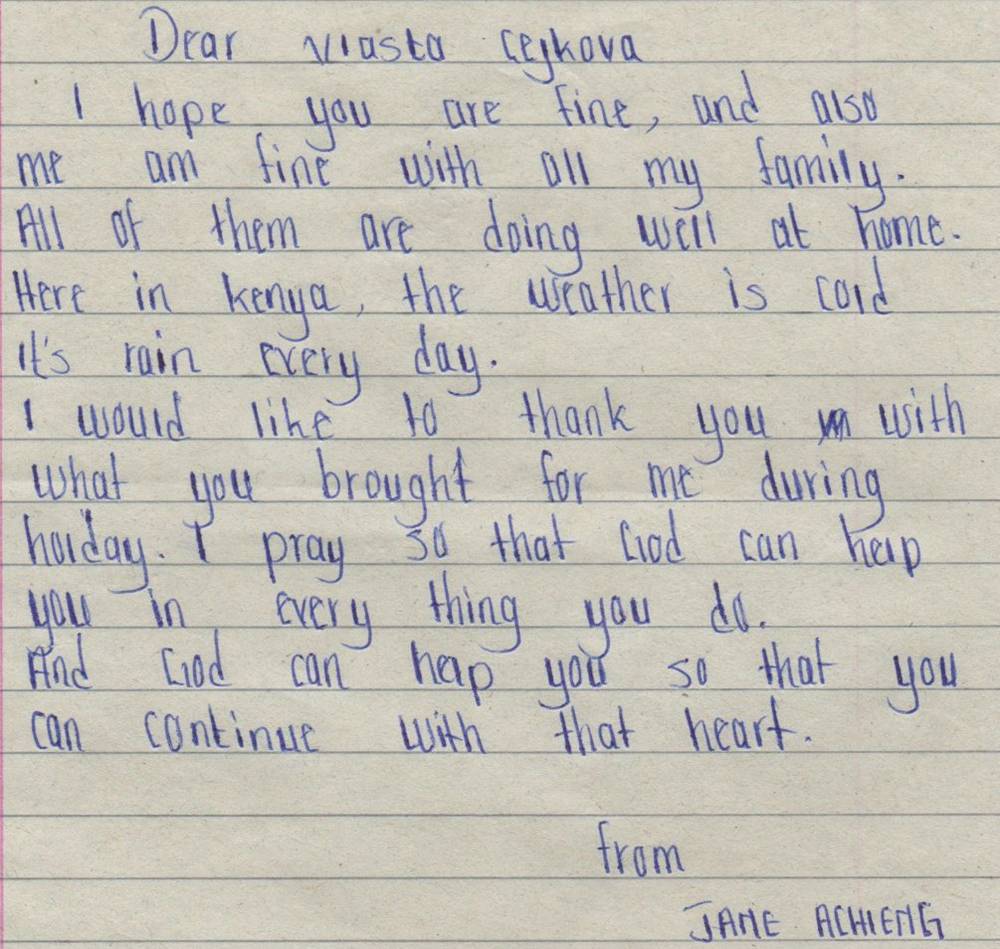 Dear Vlasta Cejkova
I hope you are fine, and also
me am fine with all my family.
All of them are doing well at home.
Here in kenya, the weather is cold
it's rain every day.
I would like to thank you with
what you brought for me during
holday. I pray so that God can help
you in every thing you do.
And God can help you so that you
can continue with that heart.
from
JANE ACHIENG